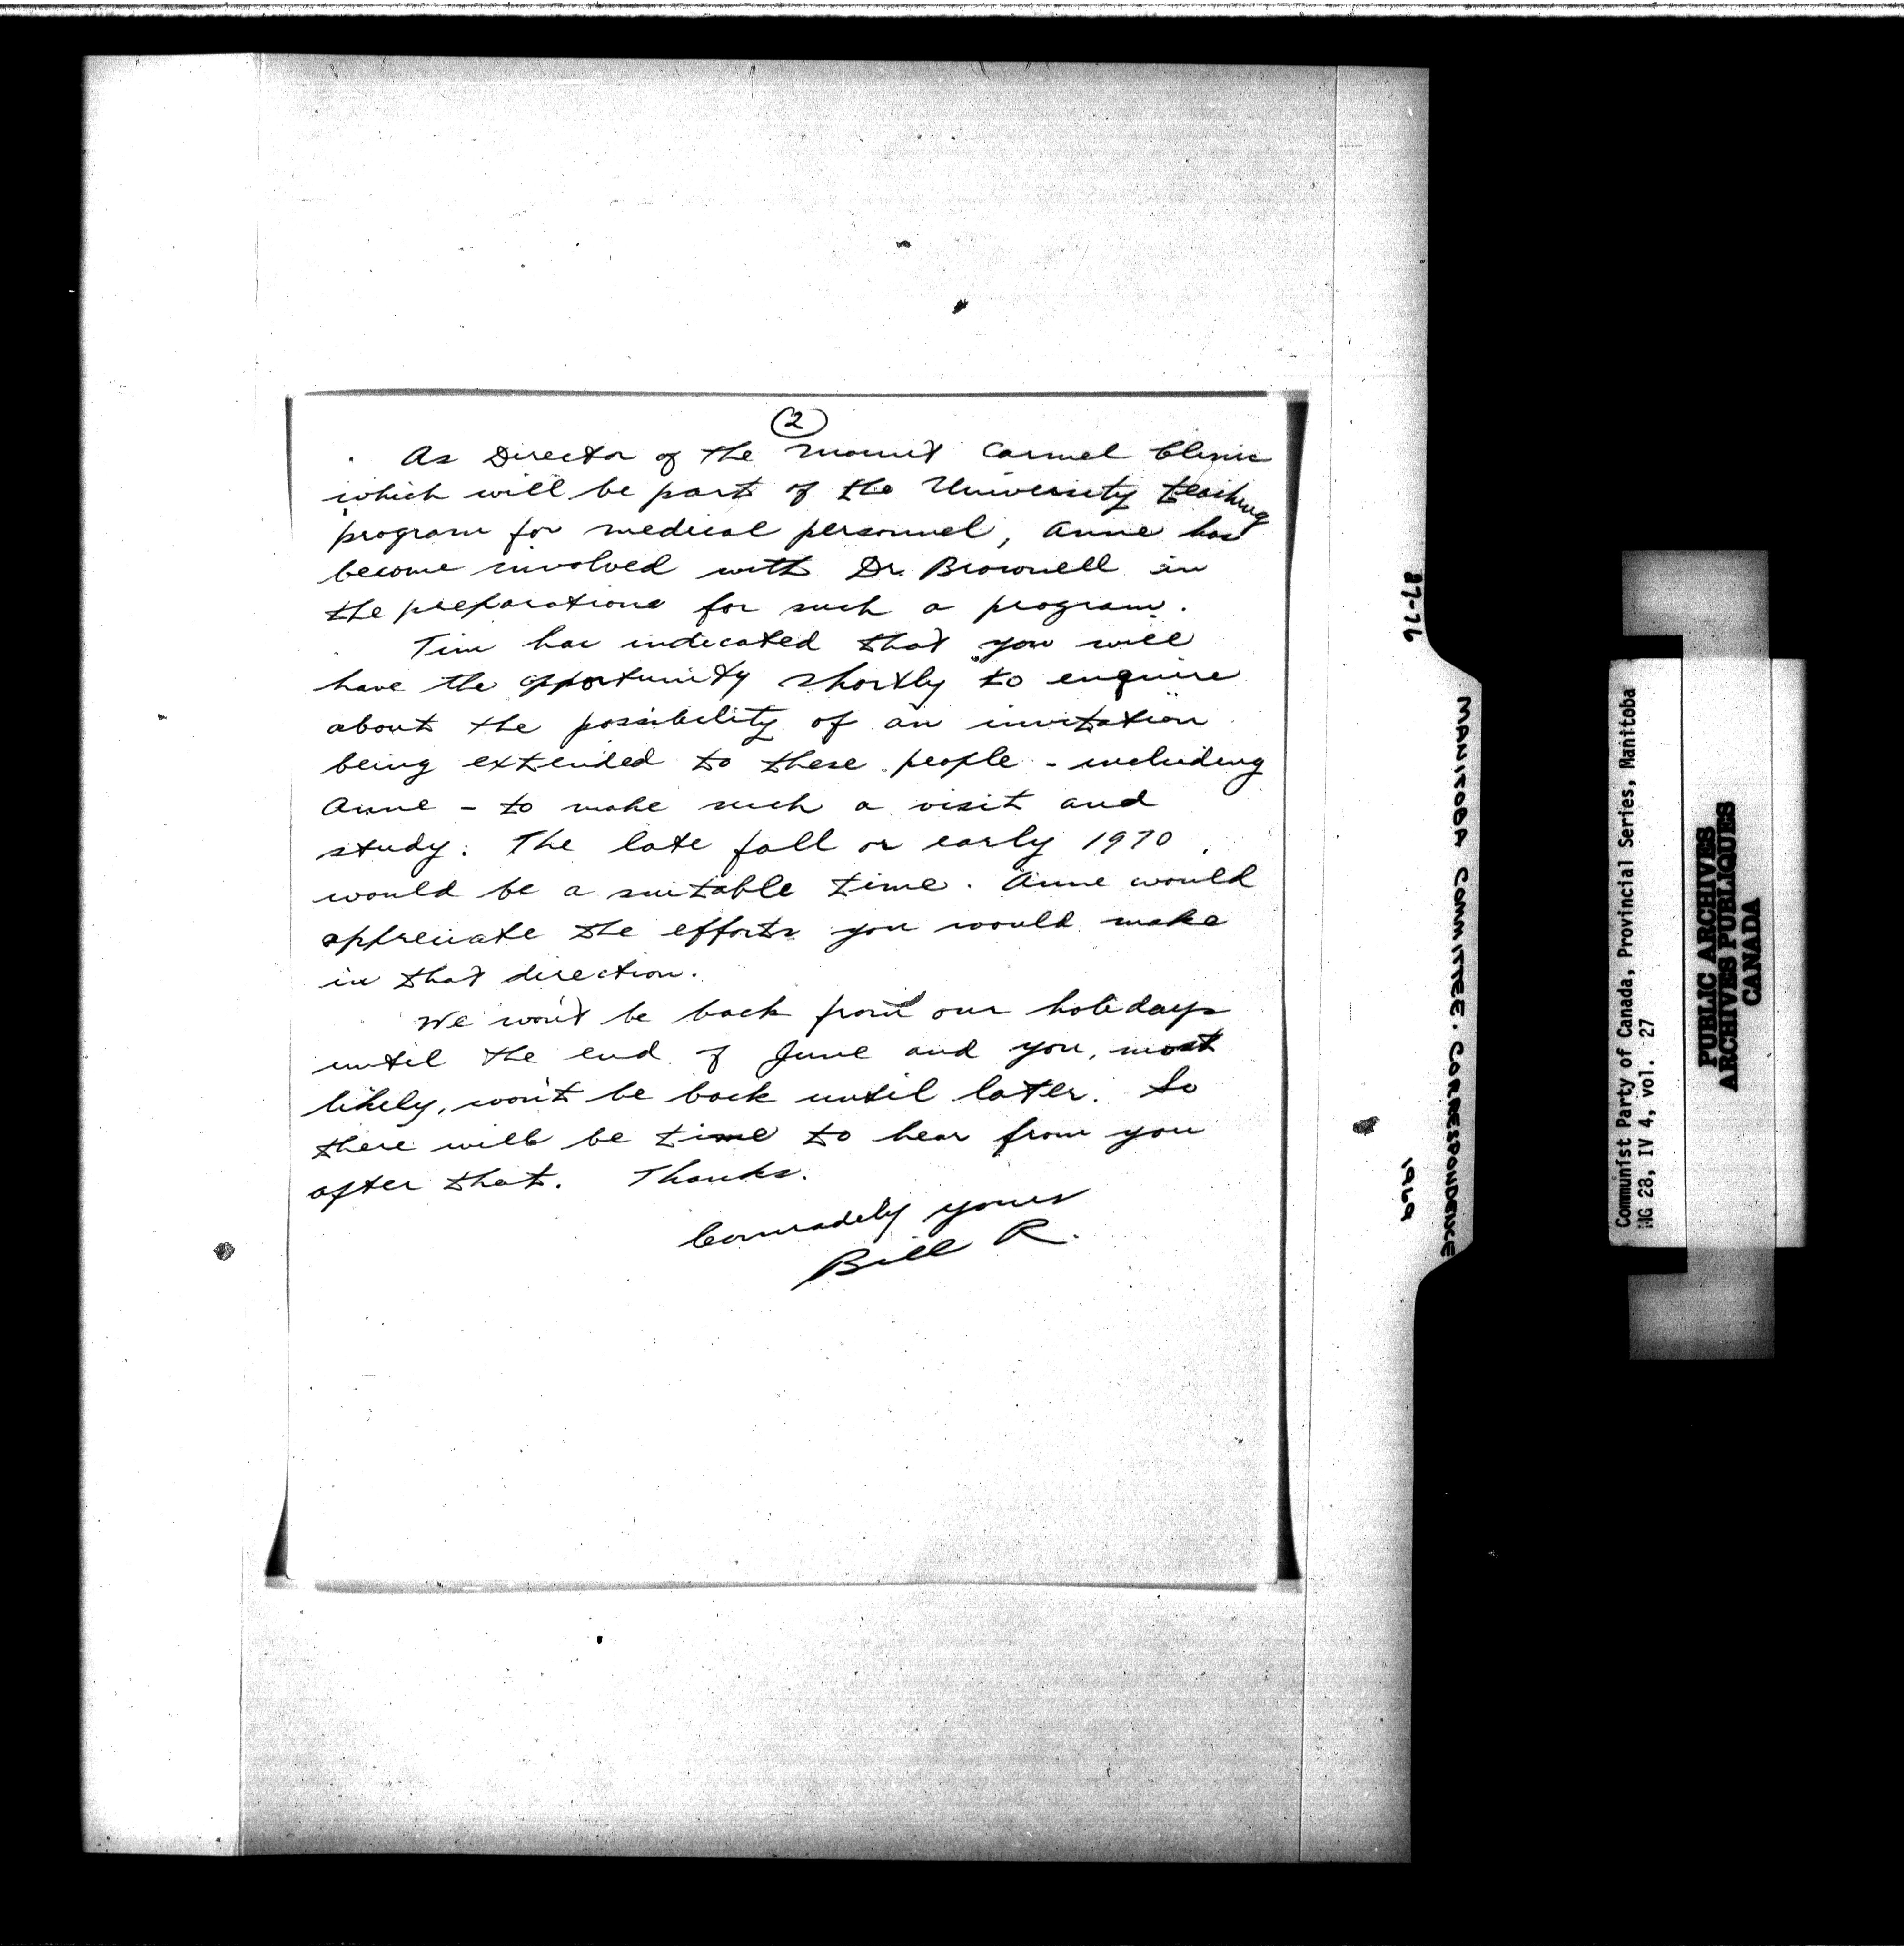 2
As Director of the Mount Carmel Clinic
which will be part of the University teaching
program for medical personnel, Anne has
become involved with Dr. Brownell in
the preparations for such a program.
Tim has indicated that you will
have the opportunity shortly to enquire
about the possibility of an invitation
being extended to these people - including
Anne - to make such a visit and
study. The late fall or early 1970
would be a suitable time. Anne would
appreciate the efforts you would make
in that direction.
We won't be back from our holidays
until the end of June and you, most
likely, won't be back until later. So
there will be time to hear from you
after that. Thanks.
Comradely yours
Bill R.
27-76
MANITOBA COMMITTEE. CORRESPONDENCE
1969
Communist Party of Canada, Provincial Series, Manitoba
MG 28, IV 4, vol. 27
PUBLIC ARCHIVES
ARCHIVES PUBLIQUES
CANADA